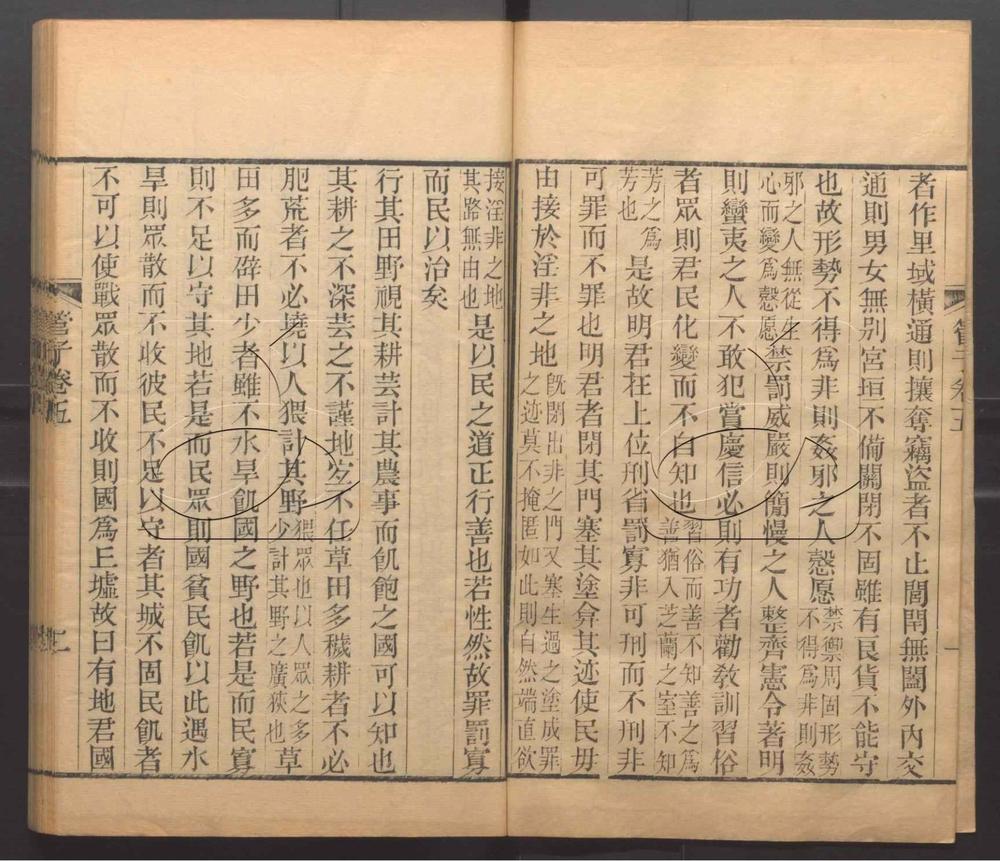 管子卷五
一
者作里域橫通則攘奪竊盜者不止閭閈無闔外內交
通則男女無別宮垣不備關閉不固雖有良貨不能守
也故形勢不得爲非則姦邪之人慤愿禁禦周固形勢不得爲非則姦
邪之人無從生心而變爲慤愿禁罰威嚴則簡慢之人整齊憲令著明
則蠻夷之人不敢犯賞慶信必則有功者勸敎訓習俗
者眾則君民化變而不自知也習俗而善不知善之爲善猶入芝蘭之室不知
芳之爲芳也是故明君在上位刑省罰寡非可刑而不刑非
可罪而不罪也明君者閉其門塞其塗弇其迹使民毋
由接於淫非之地旣閉出非之門又塞生過之塗成罪之迹莫不掩匿如此則自然端直欲
接淫非之地其路無由也是以民之道正行善也若性然故罪罰寡
而民以治矣
行其田野視其耕芸計其農事而飢飽之國可以知也
其耕之不深芸之不謹地宜不任草田多穢耕者不必
肥荒者不必墝以人猥計其野猥眾也以人眾之多少計其野之廣狹也草
田多而辟田少者雖不水旱飢國之野也若是而民寡
則不足以守其地若是而民眾則國貧民飢以此遇水
旱則眾散而不收彼民不足以守者其城不固民飢者
不可以使戰眾散而不收則國爲丘墟故曰有地君國
管子卷五